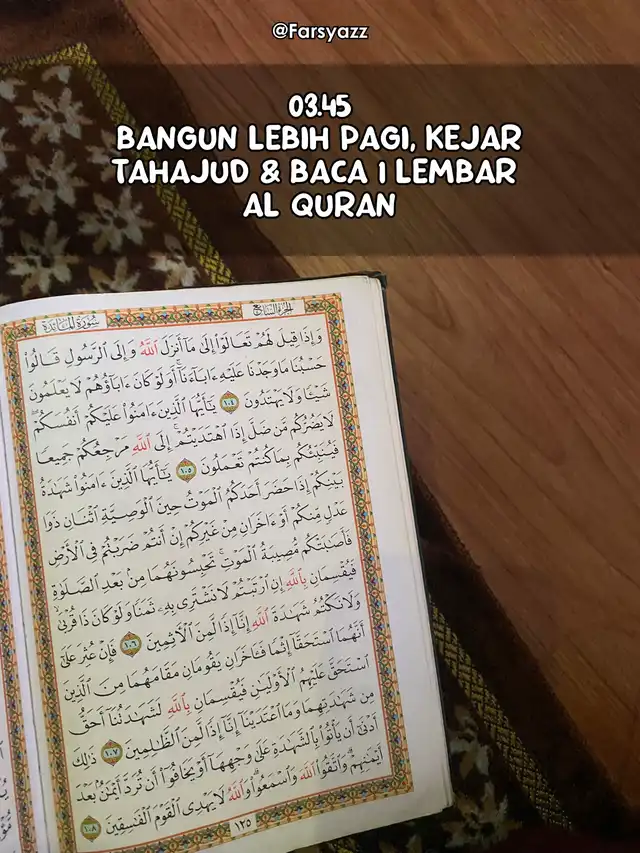 @Farsyazz
03.45
BANGUN LEBIH PAGI, KEJAR
TAHAJUD & BACA 1 LEMBAR
AL QURAN
سُورَةُ المَائدة
الجزء السابع
وَإِذَا قِيلَ لَهُمْ تَعَالَوْا۟ إِلَىٰ مَآ أَنزَلَ ٱللَّهُ وَإِلَى ٱلرَّسُولِ قَالُوا۟
حَسْبُنَا مَا وَجَدْنَا عَلَيْهِ ءَابَآءَنَآ ۚ أَوَلَوْ كَانَ ءَابَآؤُهُمْ لَا يَعْلَمُونَ
شَيْـًٔا وَلَا يَهْتَدُونَ ١٠٤ يَـٰٓأَيُّهَا ٱلَّذِينَ ءَامَنُوا۟ عَلَيْكُمْ أَنفُسَكُمْ ۖ
لَا يَضُرُّكُم مَّن ضَلَّ إِذَا ٱهْتَدَيْتُمْ ۚ إِلَى ٱللَّهِ مَرْجِعُكُمْ جَمِيعًا
فَيُنَبِّئُكُم بِمَا كُنتُمْ تَعْمَلُونَ ١٠٥ يَـٰٓأَيُّهَا ٱلَّذِينَ ءَامَنُوا۟ شَهَـٰدَةُ
بَيْنِكُمْ إِذَا حَضَرَ أَحَدَكُمُ ٱلْمَوْتُ حِينَ ٱلْوَصِيَّةِ ٱثْنَانِ ذَوَا
عَدْلٍ مِّنكُمْ أَوْ ءَاخَرَانِ مِنْ غَيْرِكُمْ إِنْ أَنتُمْ ضَرَبْتُمْ فِى ٱلْأَرْضِ
فَأَصَـٰبَتْكُم مُّصِيبَةُ ٱلْمَوْتِ ۚ تَحْبِسُونَهُمَا مِنۢ بَعْدِ ٱلصَّلَوٰةِ
فَيُقْسِمَانِ بِٱللَّهِ إِنِ ٱرْتَبْتُمْ لَا نَشْتَرِى بِهِۦ ثَمَنًا وَلَوْ كَانَ ذَا قُرْبَىٰ ۙ
وَلَا نَكْتُمُ شَهَـٰدَةَ ٱللَّهِ إِنَّآ إِذًا لَّمِنَ ٱلْـَٔاثِمِينَ ١٠٦ فَإِنْ عُثِرَ عَلَىٰٓ
أَنَّهُمَا ٱسْتَحَقَّآ إِثْمًا فَـَٔاخَرَانِ يَقُومَانِ مَقَامَهُمَا مِنَ ٱلَّذِينَ
ٱسْتَحَقَّ عَلَيْهِمُ ٱلْأَوْلَيَـٰنِ فَيُقْسِمَانِ بِٱللَّهِ لَشَهَـٰدَتُنَآ أَحَقُّ
مِن شَهَـٰدَتِهِمَا وَمَا ٱعْتَدَيْنَآ إِنَّآ إِذًا لَّمِنَ ٱلظَّـٰلِمِينَ ١٠٧ ذَٰلِكَ
أَدْنَىٰٓ أَن يَأْتُوا۟ بِٱلشَّهَـٰدَةِ عَلَىٰ وَجْهِهَآ أَوْ يَخَافُوٓا۟ أَن تُرَدَّ أَيْمَـٰنٌۢ بَعْدَ
أَيْمَـٰنِهِمْ ۗ وَٱتَّقُوا۟ ٱللَّهَ وَٱسْمَعُوا۟ ۗ وَٱللَّهُ لَا يَهْدِى ٱلْقَوْمَ ٱلْفَـٰسِقِينَ ١٠٨
١٢٥